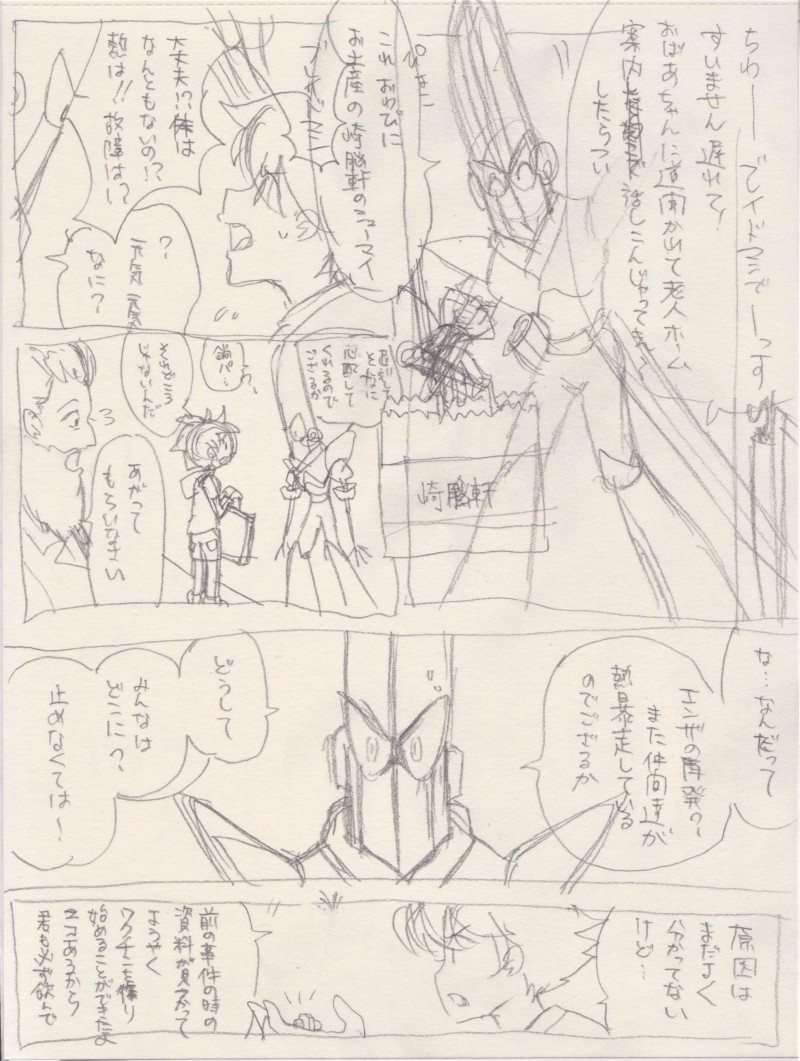 ちわーー ブレイドマンでーっす
すいません 遅れて!
おばあちゃんに道聞かれて老人ホーム
案内
したらつい
話しこんじゃってぇ〜
これ おわびに
お土産の崎脳軒のシューマイ
崎脳軒
大丈夫!?体は
なんともないの!?
熱は!!故障は!?
?
元気 元気
なに?
心配して
くれるので
ござるか
鍋パ…
う、
それどころ
じゃないんだ
あがって
もらいなさい
な…なんだって
エンザの再発の、
また仲間達が
熱暴走している
のでござるか
どうして
みんなは
どこに?
止めなくては!
原因は
まだよく
分かってない
けど…
前の事件の時の
資料が見つかって
ようやく
ワクチンを作り
始めることができたよ
ココあるから
君も必ず飲んで